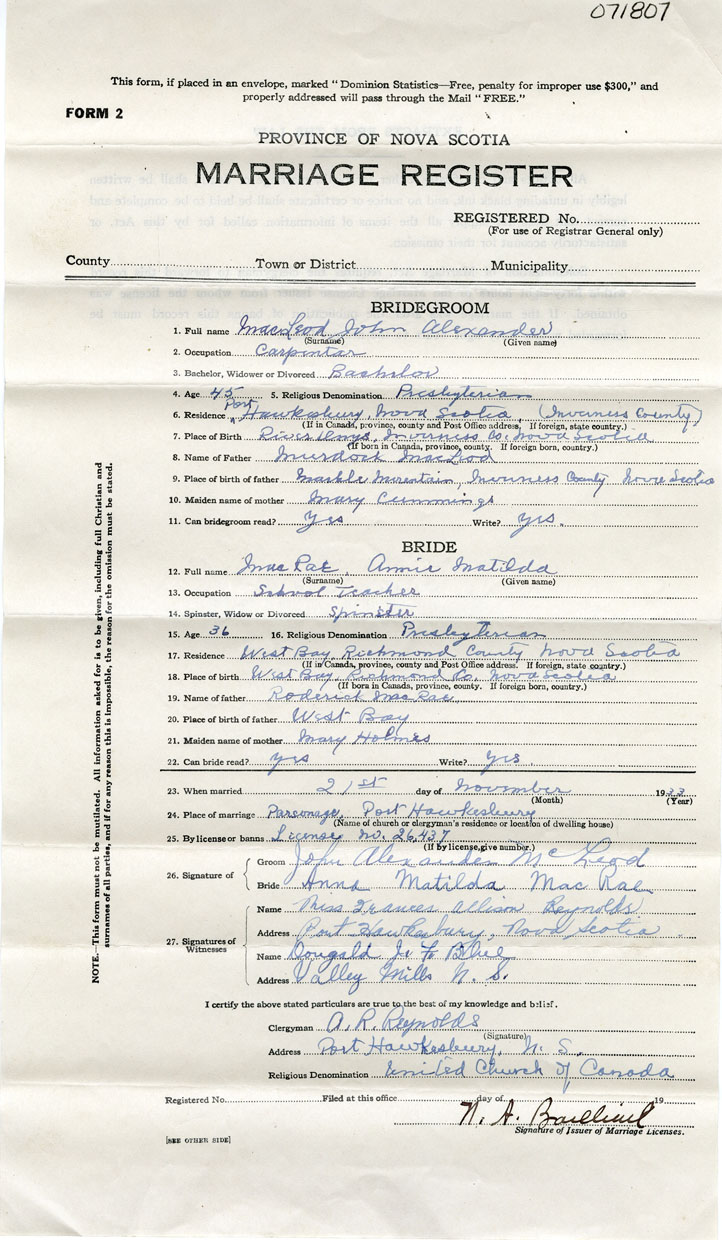 071807
This form, if placed in an envelope, marked "Dominion Statistics—Free, penalty for improper use $300," and
properly addressed will pass through the Mail "FREE."
FORM 2
PROVINCE OF NOVA SCOTIA
MARRIAGE REGISTER
REGISTERED No.
(For use of Registrar General only)
County Town or District Municipality
BRIDEGROOM
1. Full name MacLeod John Alexander
(Surname) (Given name)
2. Occupation Carpentar
3. Bachelor, Widower or Divorced Bachelor
4. Age 45 5. Religious Denomination Presbyterian
6. Residence Port Hawkesbury, Nova Scotia, (Inverness County)
(If in Canada, province, county and Post Office address. If foreign, state country.)
7. Place of Birth River Denys, Inverness Co, Nova Scotia
(If born in Canada, province, county. If foreign born, country.)
8. Name of Father Murdoch MacLeod
9. Place of birth of father Marble Mountain, Inverness County Nova Scotia
10. Maiden name of mother Mary Cummings
11. Can bridegroom read? Yes Write? Yes.
BRIDE
12. Full name MacRae, Annie Matilda
(Surname) (Given name)
13. Occupation School Teacher
14. Spinster, Widow or Divorced Spinster
15. Age 36 16. Religious Denomination Presbyterian
17. Residence West Bay, Richmond County Nova Scotia
(If in Canada, province, county and Post Office address. If foreign, state country.)
18. Place of birth West Bay, Richmond Co, Nova Scotia
(If born in Canada, province, county. If foreign born, country.)
19. Name of father Roderick MacRae
20. Place of birth of father West Bay
21. Maiden name of mother Mary Holmes
22. Can bride read? Yes Write? Yes
23. When married 21st day of November 1933
(Month) (Year)
24. Place of marriage Parsonage, Port Hawkesbury
(Name of church or clergyman's residence or location of dwelling house)
25. By license or banns License No. 26,437
(If by license, give number.)
26. Signature of
Groom John Alexander McLeod
Bride Anna Matilda MacRae
27. Signatures of Witnesses
Name Miss Frances Allison Reynolds
Address Port Hawkesbury, Nova Scotia
Name Dougald J. F. Blue
Address Valley Mills N.S.
I certify the above stated particulars are true to the best of my knowledge and belief.
Clergyman A. R. Reynolds
(Signature)
Address Port Hawkesbury, N.S.
Religious Denomination United Church of Canada
Registered No. Filed at this office day of 19
N. A.
Signature of Issuer of Marriage Licenses.
[SEE OTHER SIDE]
NOTE.—This form must not be mutilated. All information asked for is to be given, including full Christian and
surnames of all parties, and if for any reason this is impossible, the reason for the omission must be stated.